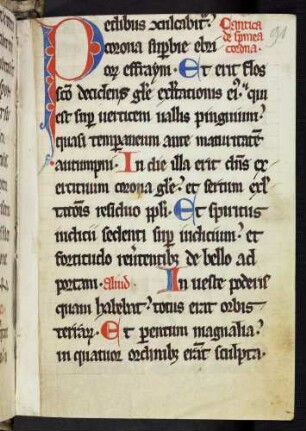 Pedibus conculcabit᷑
Cantica
de spinea
corona.
91
corona suꝑbie ebri
oꝝ effraym. Et erit flos
decidens gl̅e exltationis ei᷒. qui
est suꝑ verticem uallis pinguium.
quasi temporaneum ante maturitate̅
autumpni. In die illa erit dn̅s ex
ercituum corona gl̅e. et sertum exl
tationis residuo ppl̅i. Et spiritus
iudicii sedenti suꝑ iudicium. et
fortitudo reu̅tentib᷒ de bello ad
portam. Aliud. In ueste poderis
quam habebat. totus erat orbis
terraꝝ. Et parentum magnalia.
in quatuor ordinib᷒ erant sculpta.